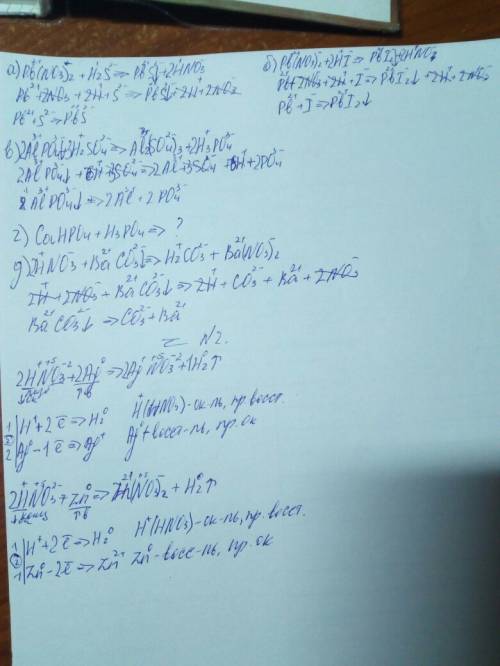 а) Pb(NO3)2 + H2S => PbS↓ + 2HNO3
Pb²⁺ + 2NO3⁻ + 2H⁺ + S²⁻ => PbS↓ + 2H + 2NO3
Pb²⁺ + S²⁻ => PbS
б) Pb(NO3)2 + 2HI => PbI2 + 2HNO3
Pb + 2NO3 + 2H + I => PbI2↓ + 2H + 2NO3
Pb²⁺ + I⁻ => PbI2↓
в) 2AlPO4 + 3H2SO4 => Al2(SO4)3 + 2H3PO4
2AlPO4↓ + 6H + 3SO4 => 2Al + 3SO4 + 6H + 2PO4
2AlPO4↓ => 2Al + 2PO4
г) CaHPO4 + H3PO4 => ?
д) 2HNO3 + BaCO3↓ => H2CO3 + Ba(NO3)2
2H + 2NO3 + BaCO3↓ => 2H + CO3 + Ba + 2NO3
BaCO3↓ => CO3 + Ba
N2.
2HNO3 + 2Ag⁰ => 2AgNO3 + 1H2↑
тв
1 | H⁺ + 2ē => H2⁰ H⁺(HNO3) - ок-ль, пр. восст.
2 | Ag⁰ - 1ē => Ag⁺ Ag⁰ восст-ль, пр. ок
2HNO3 + Zn⁰ => Zn(NO3)2 + H2↑
конц тв
1 | H⁺ + 2ē => H2⁰ H⁺(HNO3) - ок-ль, пр. восст.
1 | Zn⁰ - 2ē => Zn²⁺ Zn⁰ - восс-ль, пр. ок